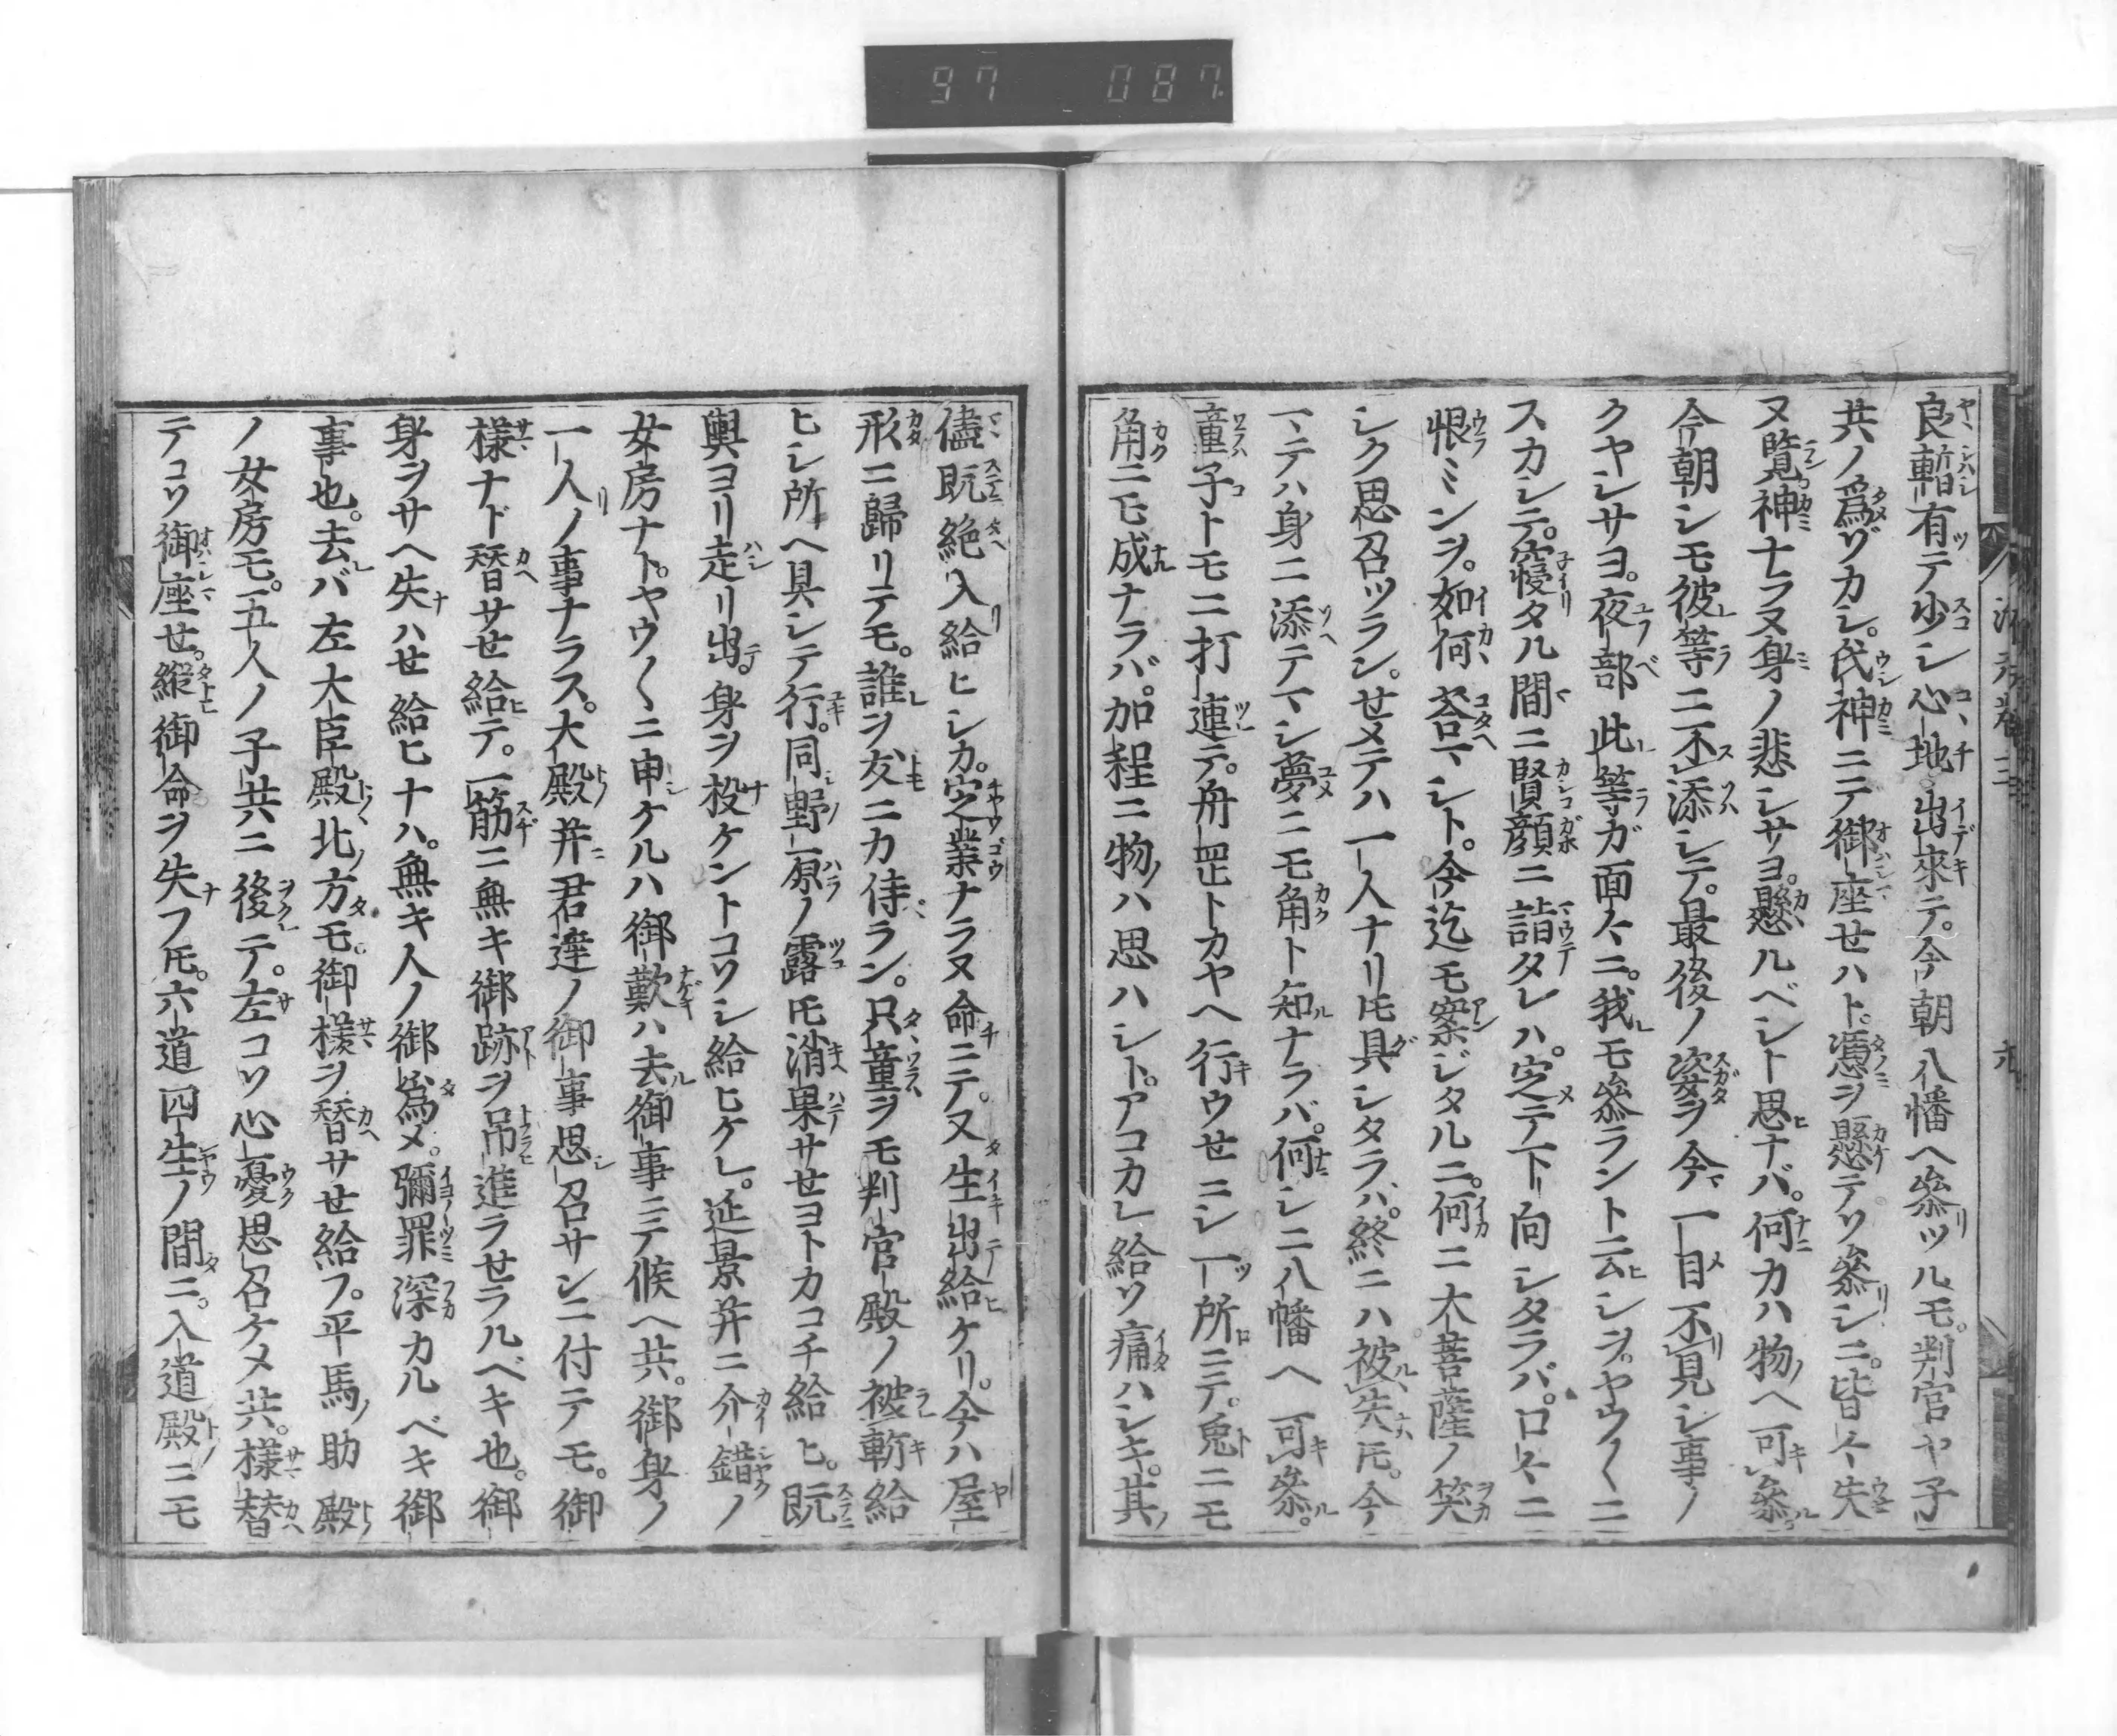 97 087
良暫有テ少シ心地出來テ。今朝八幡ヘ參ツルモ。判官ヤ子
共ノ爲ゾカシ。氏神ニテ御座セハト。憑ヲ懸テソ參シニ。皆々失
ヌ覽神ナラヌ身ノ悲シサヨ。懸ルベシト思ナバ。何カハ物ヘ可參
今朝シモ彼等ニ不添シテ。最後ノ姿ヲ今一目不見シ事ノ
クヤシサヨ。夜部此等ガ面々ニ。我モ參ラント云シヲ。ヤウ〱ニ
スカシテ。寢タル間ニ賢顔ニ詣タレハ。定テ下向シタラバ。口々ニ
恨ミンヲ。如何答マシト。今迄モ案ジタルニ。何ニ大菩薩ノ笑
シク思召ツラン。せメテハ一人ナリ𪜈具シタラハ。終ニハ被失𪜈。今
マテハ身ニ添テマシ夢ニモ角ト知ナラバ。何シニ八幡ヘ可參。
童子トモニ打連テ。舟岡トカヤヘ行ウせニシ一所ニテ。兎ニモ
角ニモ成ナラバ。加程ニ物ハ思ハシト。アコカレ給ソ痛ハシキ。其
儘既絶入給ヒシカ。定業ナラヌ命ニテ。又生出給ケリ。今ハ屋
形ニ歸リテモ。誰ヲ友ニカ侍ラン。只童ヲモ判官殿ノ被斬給
ヒシ所ヘ具シテ行。同野原ノ露𪜈消果サせヨトカコチ給ヒ。既
輿ヨリ走リ出。身ヲ投ケントコソシ給ヒケレ。延景并ニ介錯ノ
女房ナト。ヤウ〱ニ申ケルハ御歎ハ去御事ニテ候ヘ共。御身ノ
一人ノ事ナラス。大殿并君達ノ御事思召サンニ付テモ。御
樣ナド替サせ給テ。一筋ニ無キ御跡ヲ吊進ラせラルベキ也。御
身ヲサヘ失ハせ給ヒナハ。無キ人ノ御爲メ。彌罪深カルベキ御
事也。去バ左大臣殿北方モ。御樣ヲ替サせ給フ。平馬助殿
ノ女房モ。五人ノ子共ニ後テ。左コソ心憂思召ケメ共。樣替
テコソ御座せ。縱御命ヲ失フ𪜈。六道四生ノ間ニ。入道殿ニモ